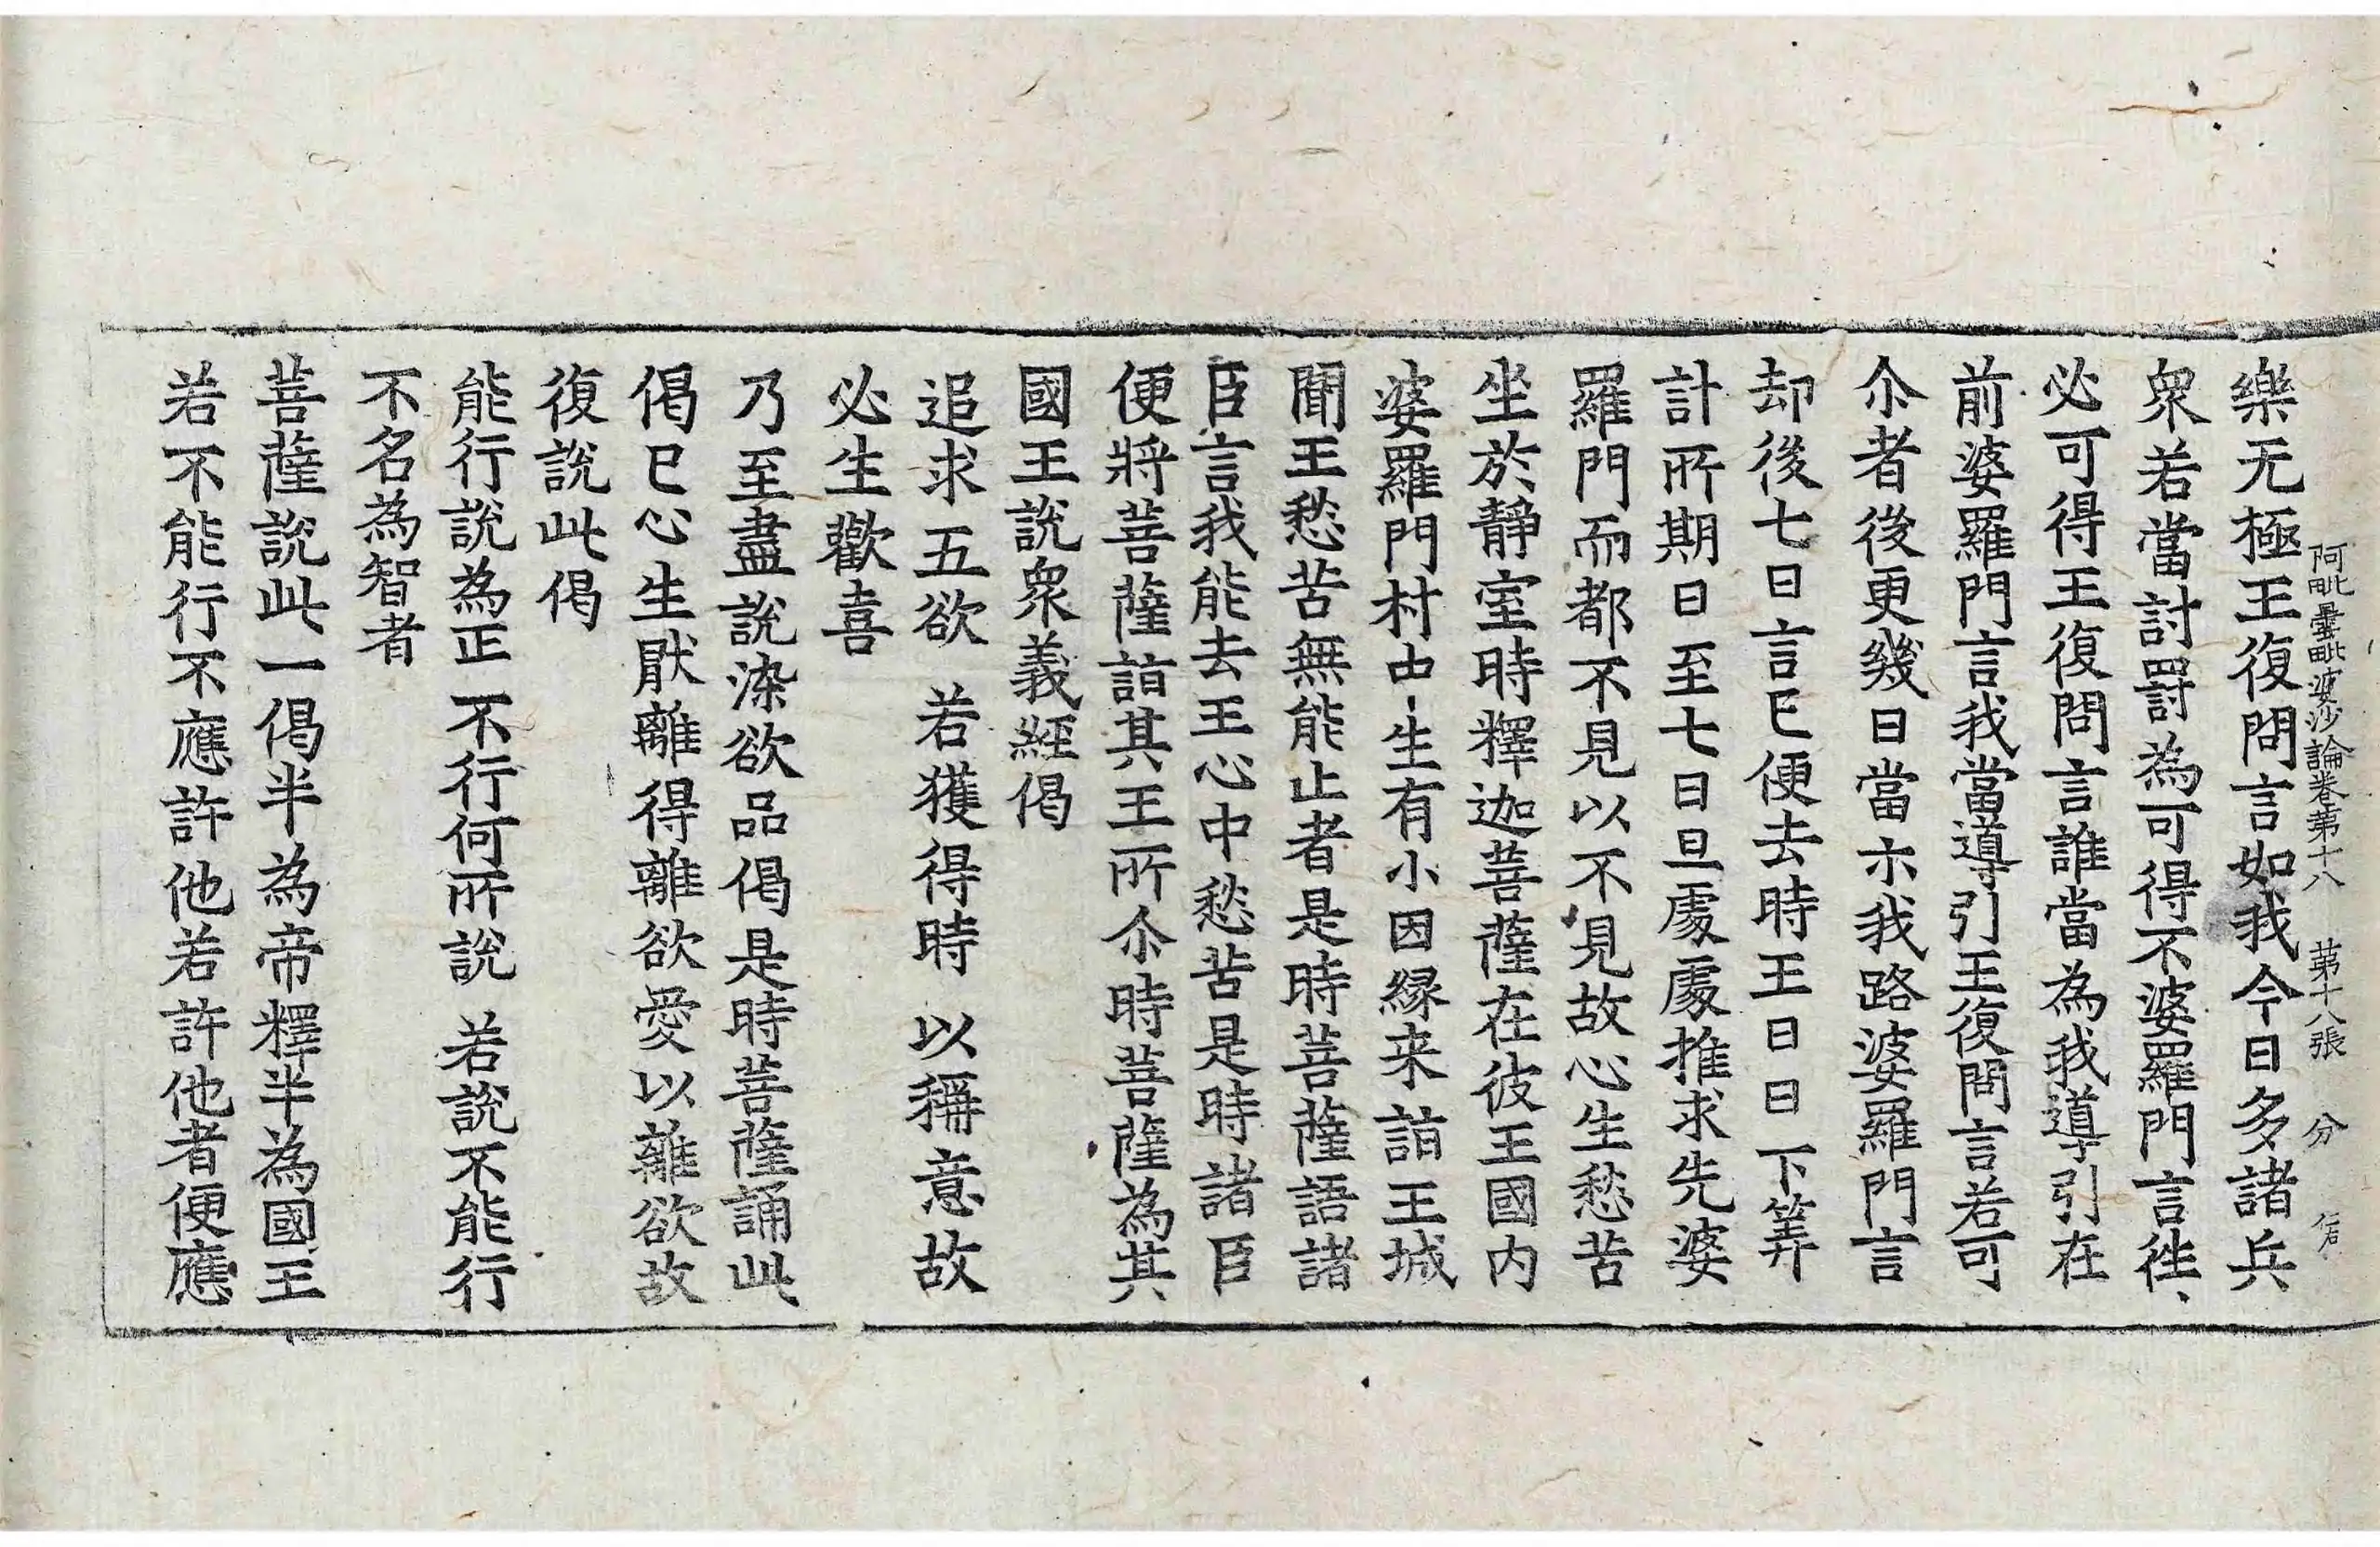 阿毗曇毗婆沙論卷第十八　第十八張　分
樂无極王復問言如我今日多諸兵
衆若當討罸為可得不婆羅門言徃
必可得王復問言誰當為我導引在
前婆羅門言我當導引王復問言若可
尒者後更幾日當示我路婆羅門言
却後七日言已便去時王日日下筭
計所期日至七日旦處處推求先婆
羅門而都不見以不見故心生愁苦
坐於靜室時釋迦菩薩在彼王國内
婆羅門村中生有小因緣来詣王城
聞王愁苦無能止者是時菩薩語諸
臣言我能去王心中愁苦是時諸臣
便將菩薩詣其王所尒時菩薩為其
國王說衆義經偈
追求五欲　若獲得時　以稱意故
必生歡喜
乃至盡說染欲品偈是時菩薩誦此
偈已心生厭離得離欲愛以離欲故
復說此偈
能行說為正　不行何所說　若說不能行
不名為智者
菩薩說此一偈半為帝釋半為國王
若不能行不應許他若許他者便應